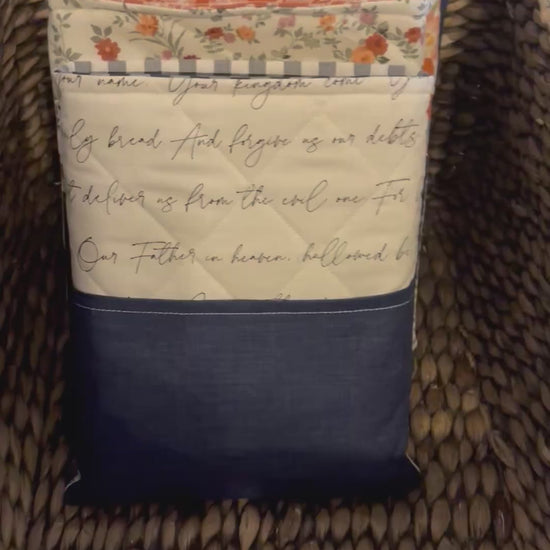 our name. Your kingdom come
ly bread And forgive us our debts
t deliver us from the evil one For
Our Father in heaven, hallowed b